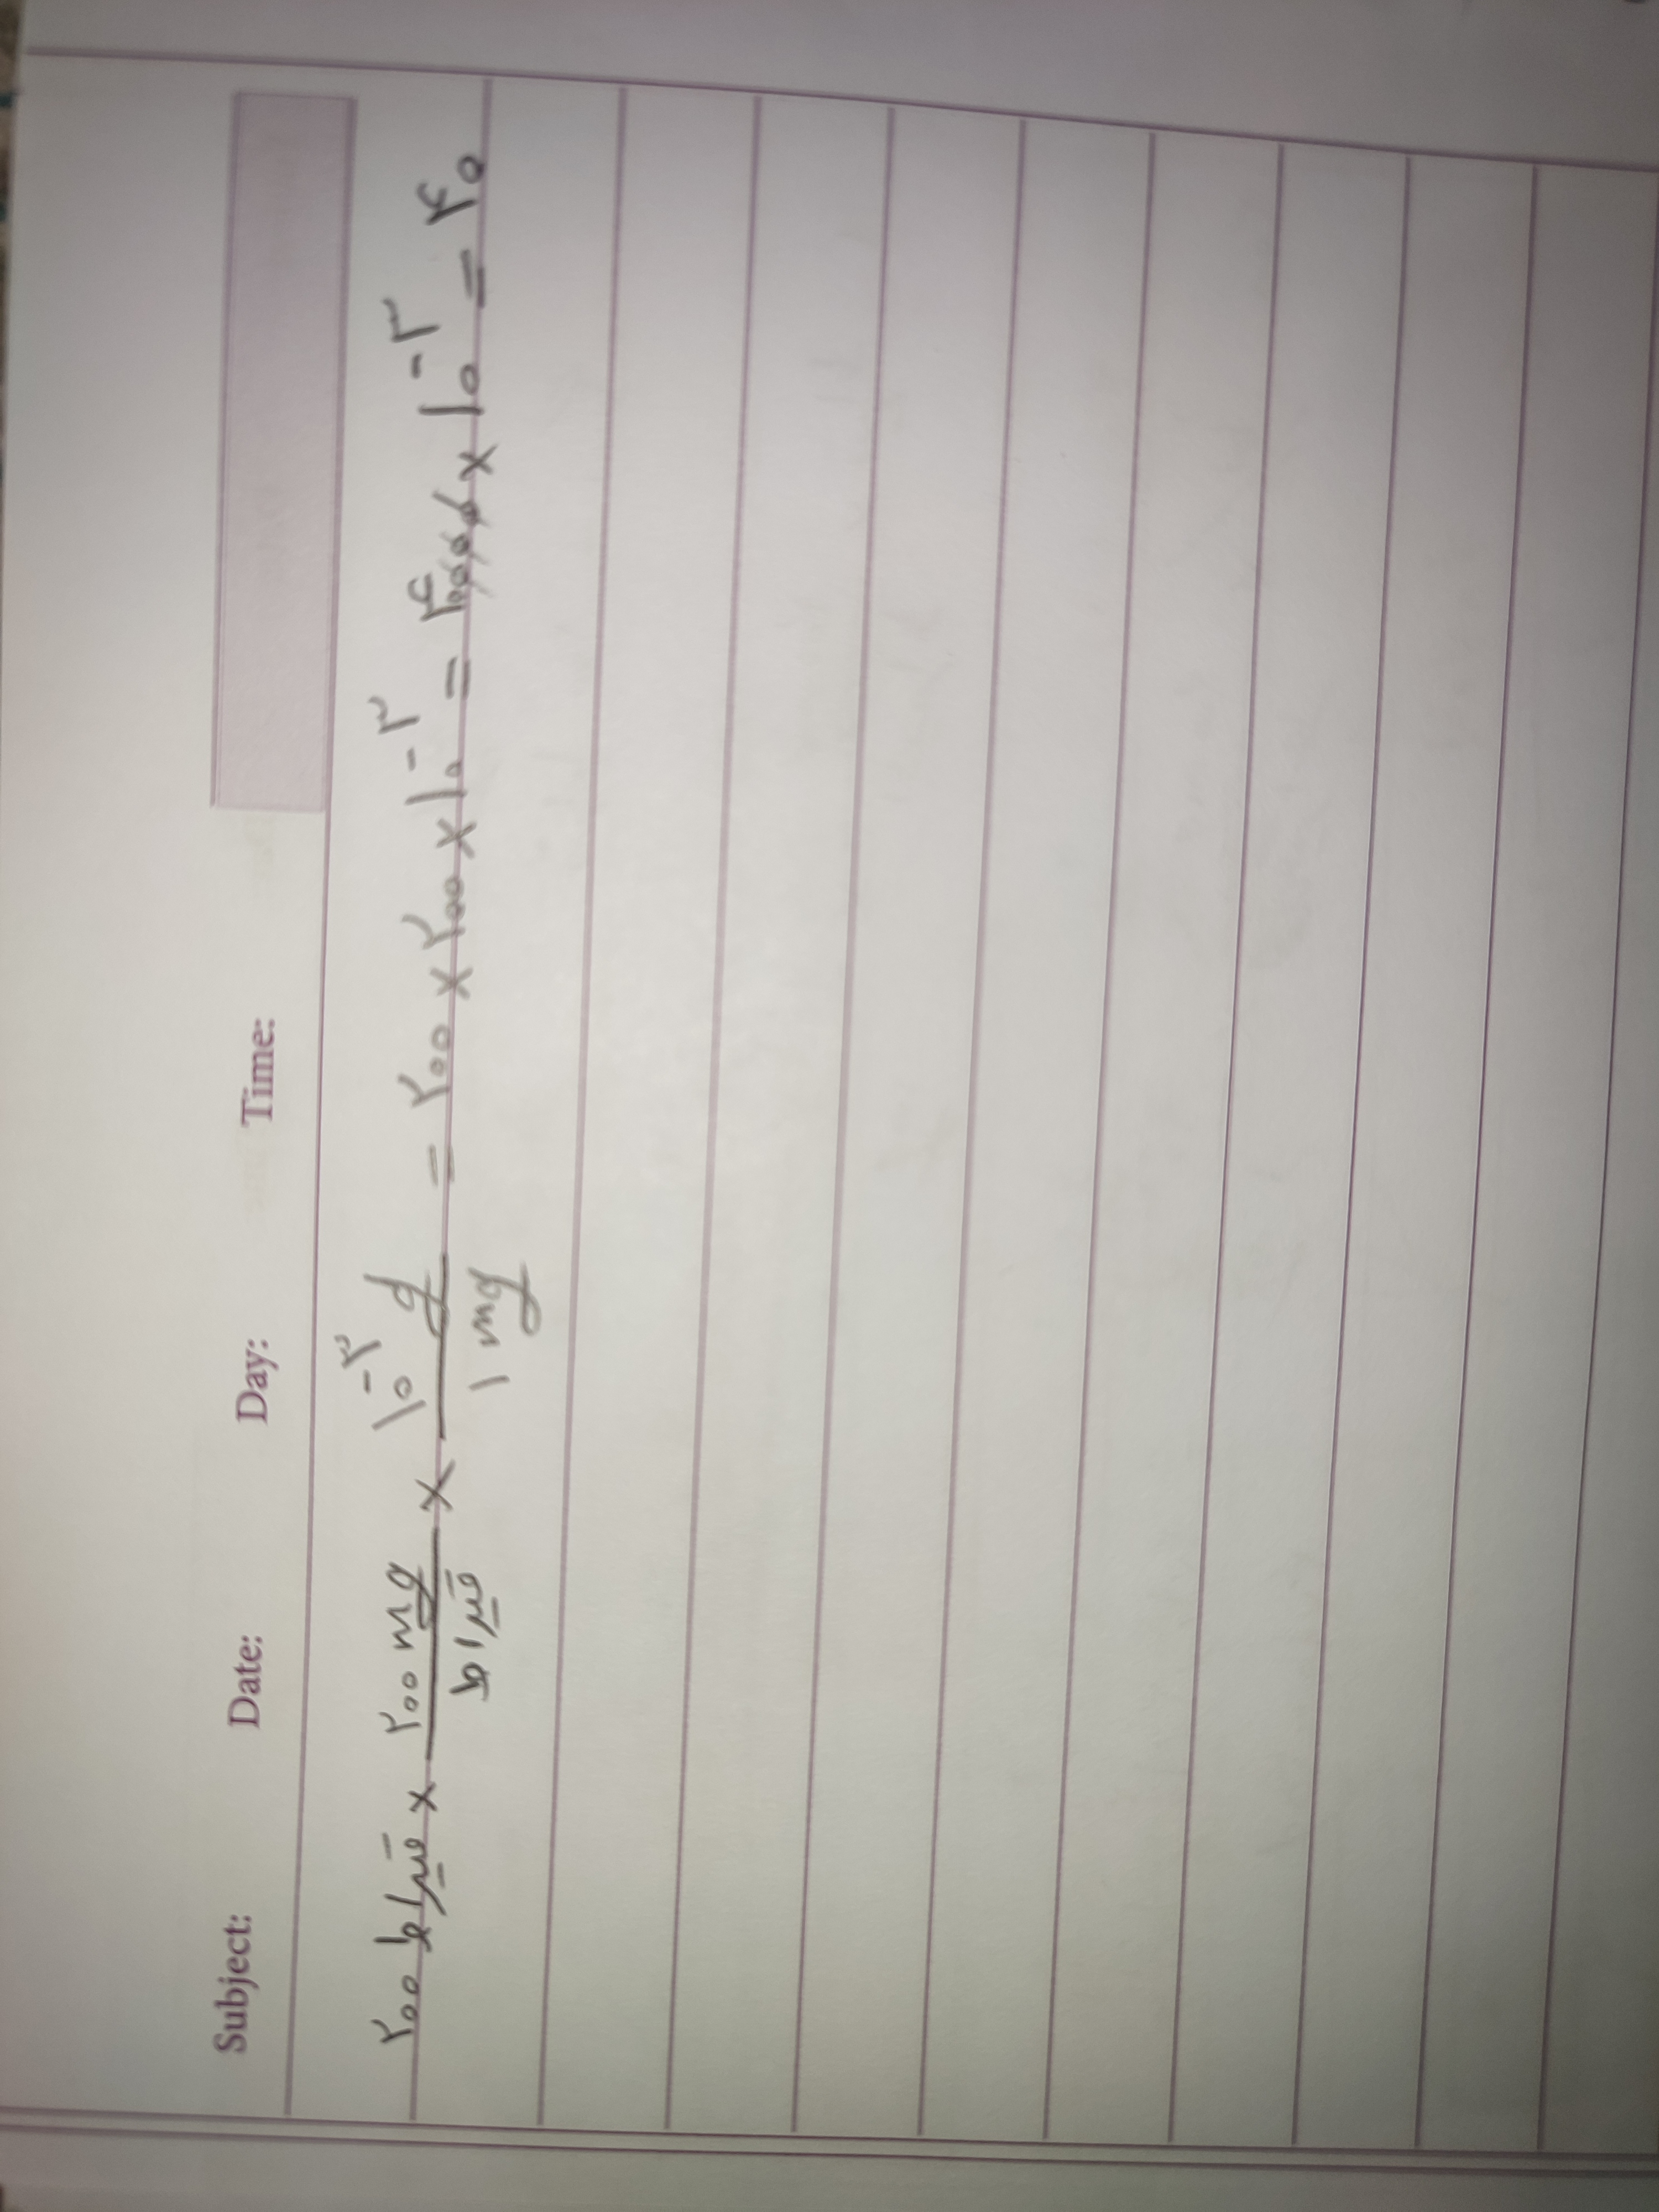 Subject: Date: Day: Time:
۲۰۰ قیراط × ۲۰۰ mg / قیراط × ۱۰⁻³ g / ۱ mg = ۲۰۰ × ۲۰۰ × ۱۰⁻³ = ۴۰۰۰۰ × ۱۰⁻³ = ۴۰